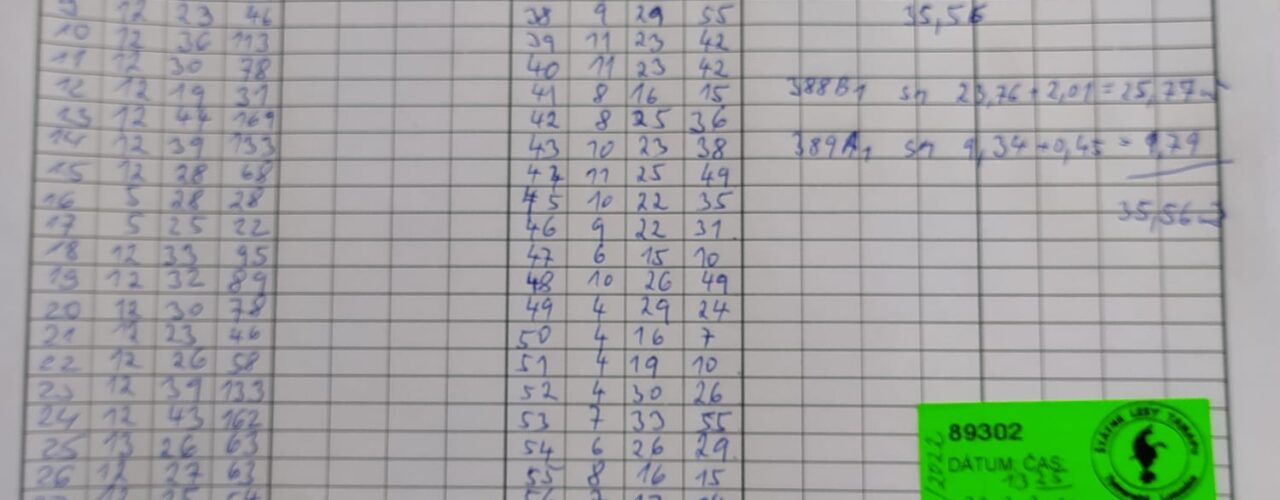 9 12 23 46
10 12 36 113
11 12 30 78
12 12 19 31
13 12 44 169
14 12 39 133
15 12 28 68
16 5 28 28
17 5 25 22
18 12 33 95
19 12 32 89
20 12 30 78
21 12 23 46
22 12 26 58
23 12 39 133
24 12 43 162
25 13 26 63
26 12 27 63
38 9 29 55
39 11 23 42
40 11 23 42
41 8 16 15
42 8 25 36
43 10 23 38
44 11 25 49
45 10 22 35
46 9 22 31
47 6 15 10
48 10 26 49
49 4 29 24
50 4 16 7
51 4 19 10
52 4 30 26
53 7 33 55
54 6 26 29
55 8 16 15
35,56
388B1 sm 23,76 + 2,01 = 25,77
389A1 sm 9,34 + 0,45 = 9,79
35,56 m3
89302
DÁTUM, ČAS
ŠTÁTNE LESY TANAPU